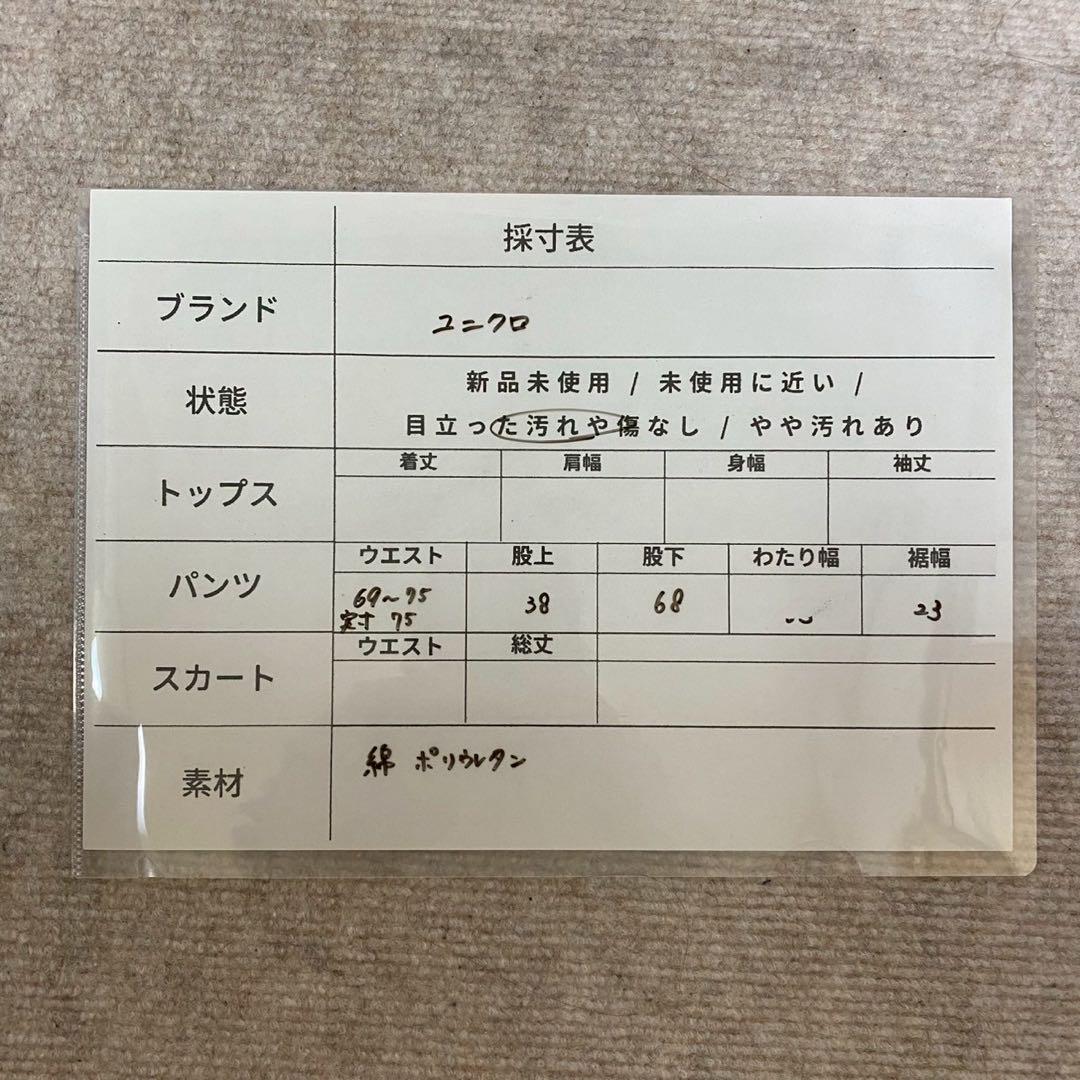 採寸表
ブランド
ユニクロ
状態
新品未使用 / 未使用に近い /
目立った汚れや傷なし / やや汚れあり
トップス
着丈 肩幅 身幅 袖丈
パンツ
ウエスト 股上 股下 わたり幅 裾幅
69~75 38 68 23
実寸 75
スカート
ウエスト 総丈
素材
綿 ポリウレタン